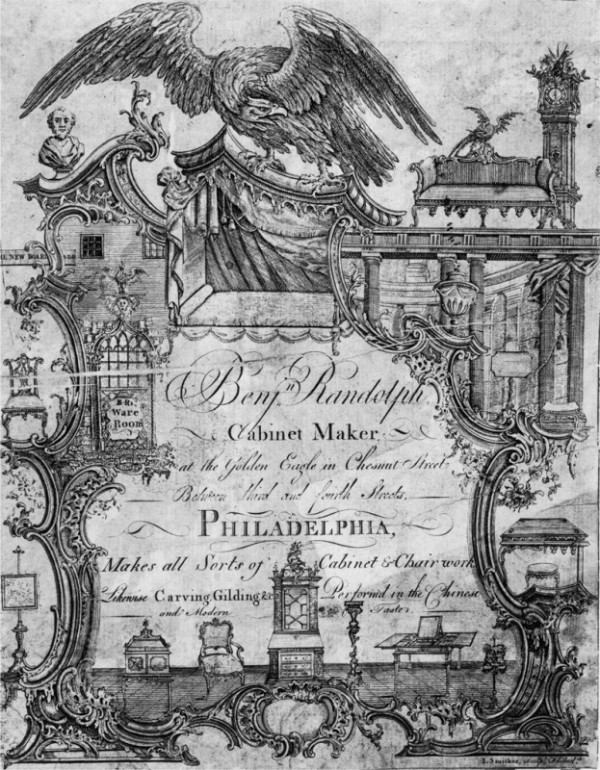 NEW BOARD
B:R:
Ware
Room
Benj.n Randolph
Cabinet Maker
at the Golden Eagle in Chesnut Street
Between third and fourth Streets,
PHILADELPHIA,
Makes all Sorts of Cabinet & Chair work
Likewise Carving, Gilding &c Perform'd in the Chinese
and Modern Tastes.